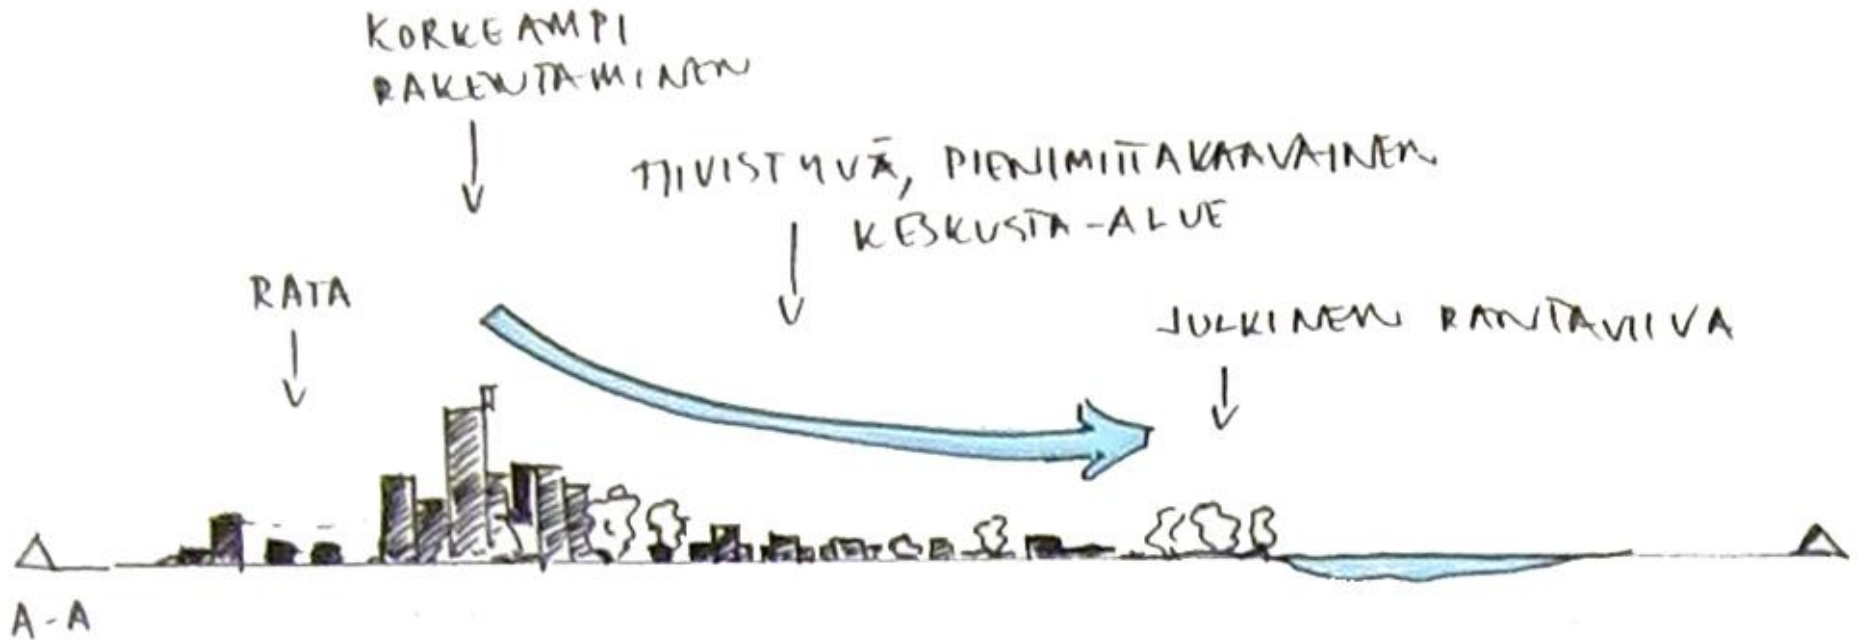 KORKEAMPI
RAKENTAMINEN
TIIVISTYVÄ, PIENIMITTAKAAVAINEN
KESKUSTA-ALUE
RATA
JULKINEN RANTAVIIVA
A-A